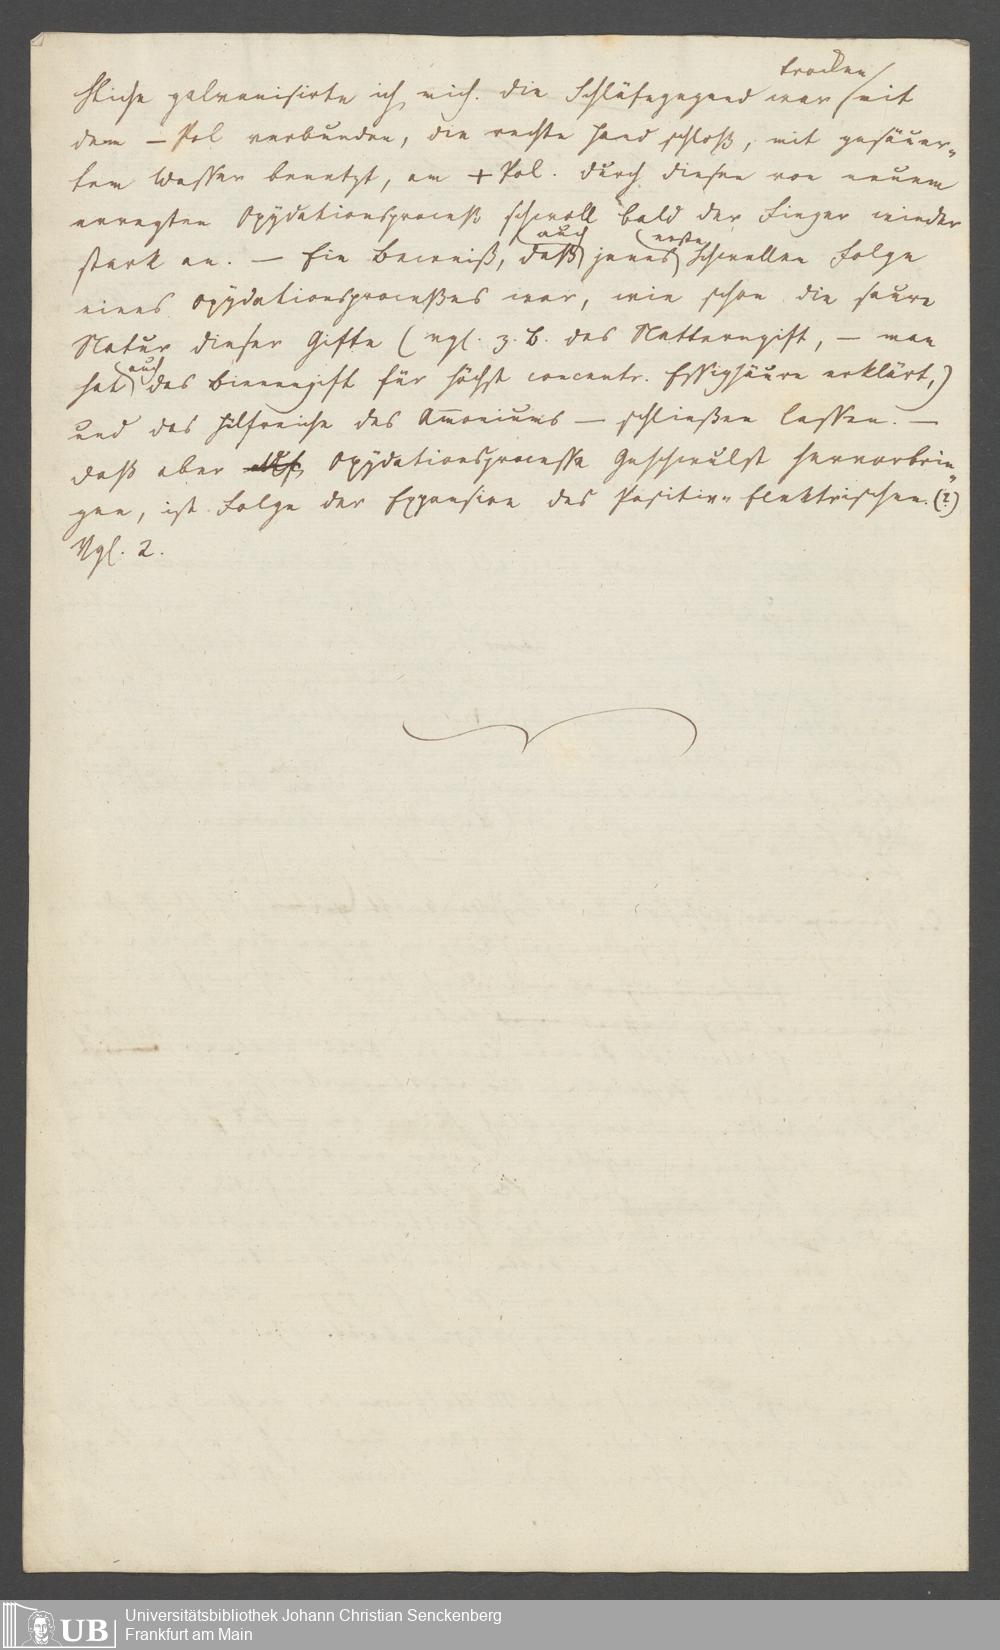 trocken
Stiche galvanisirte ich mich. Die Schläfegegend war mit
dem – Pol verbunden, die rechte Hand schloß, mit gesäuer„
tem Wasser benetzt, am + Pol. Durch diesen von neuem
erregten Oxÿdationsproceß schwoll bald der Finger wieder
auch erste
stark an. – Ein Beweiß, daß jenes Schwellen Folge
eines Oxÿdationsproceßes war, wie schon die saure
Natur dieser Gifte (vgl. z. B. das Natterngift, – man
auch
hat das Bienengift für höchst concentr. Essigsäure erklärt,)
und das Hilfreiche des Am̅oniums – schließen lassen. –
daß aber Oxÿdationsprocesse Geschwulst hervorbrin„
gen, ist Folge der Expansion des Positiv„ Elektrischen. (?)
Vgl. 2.
UB
Universitätsbibliothek Johann Christian Senckenberg
Frankfurt am Main